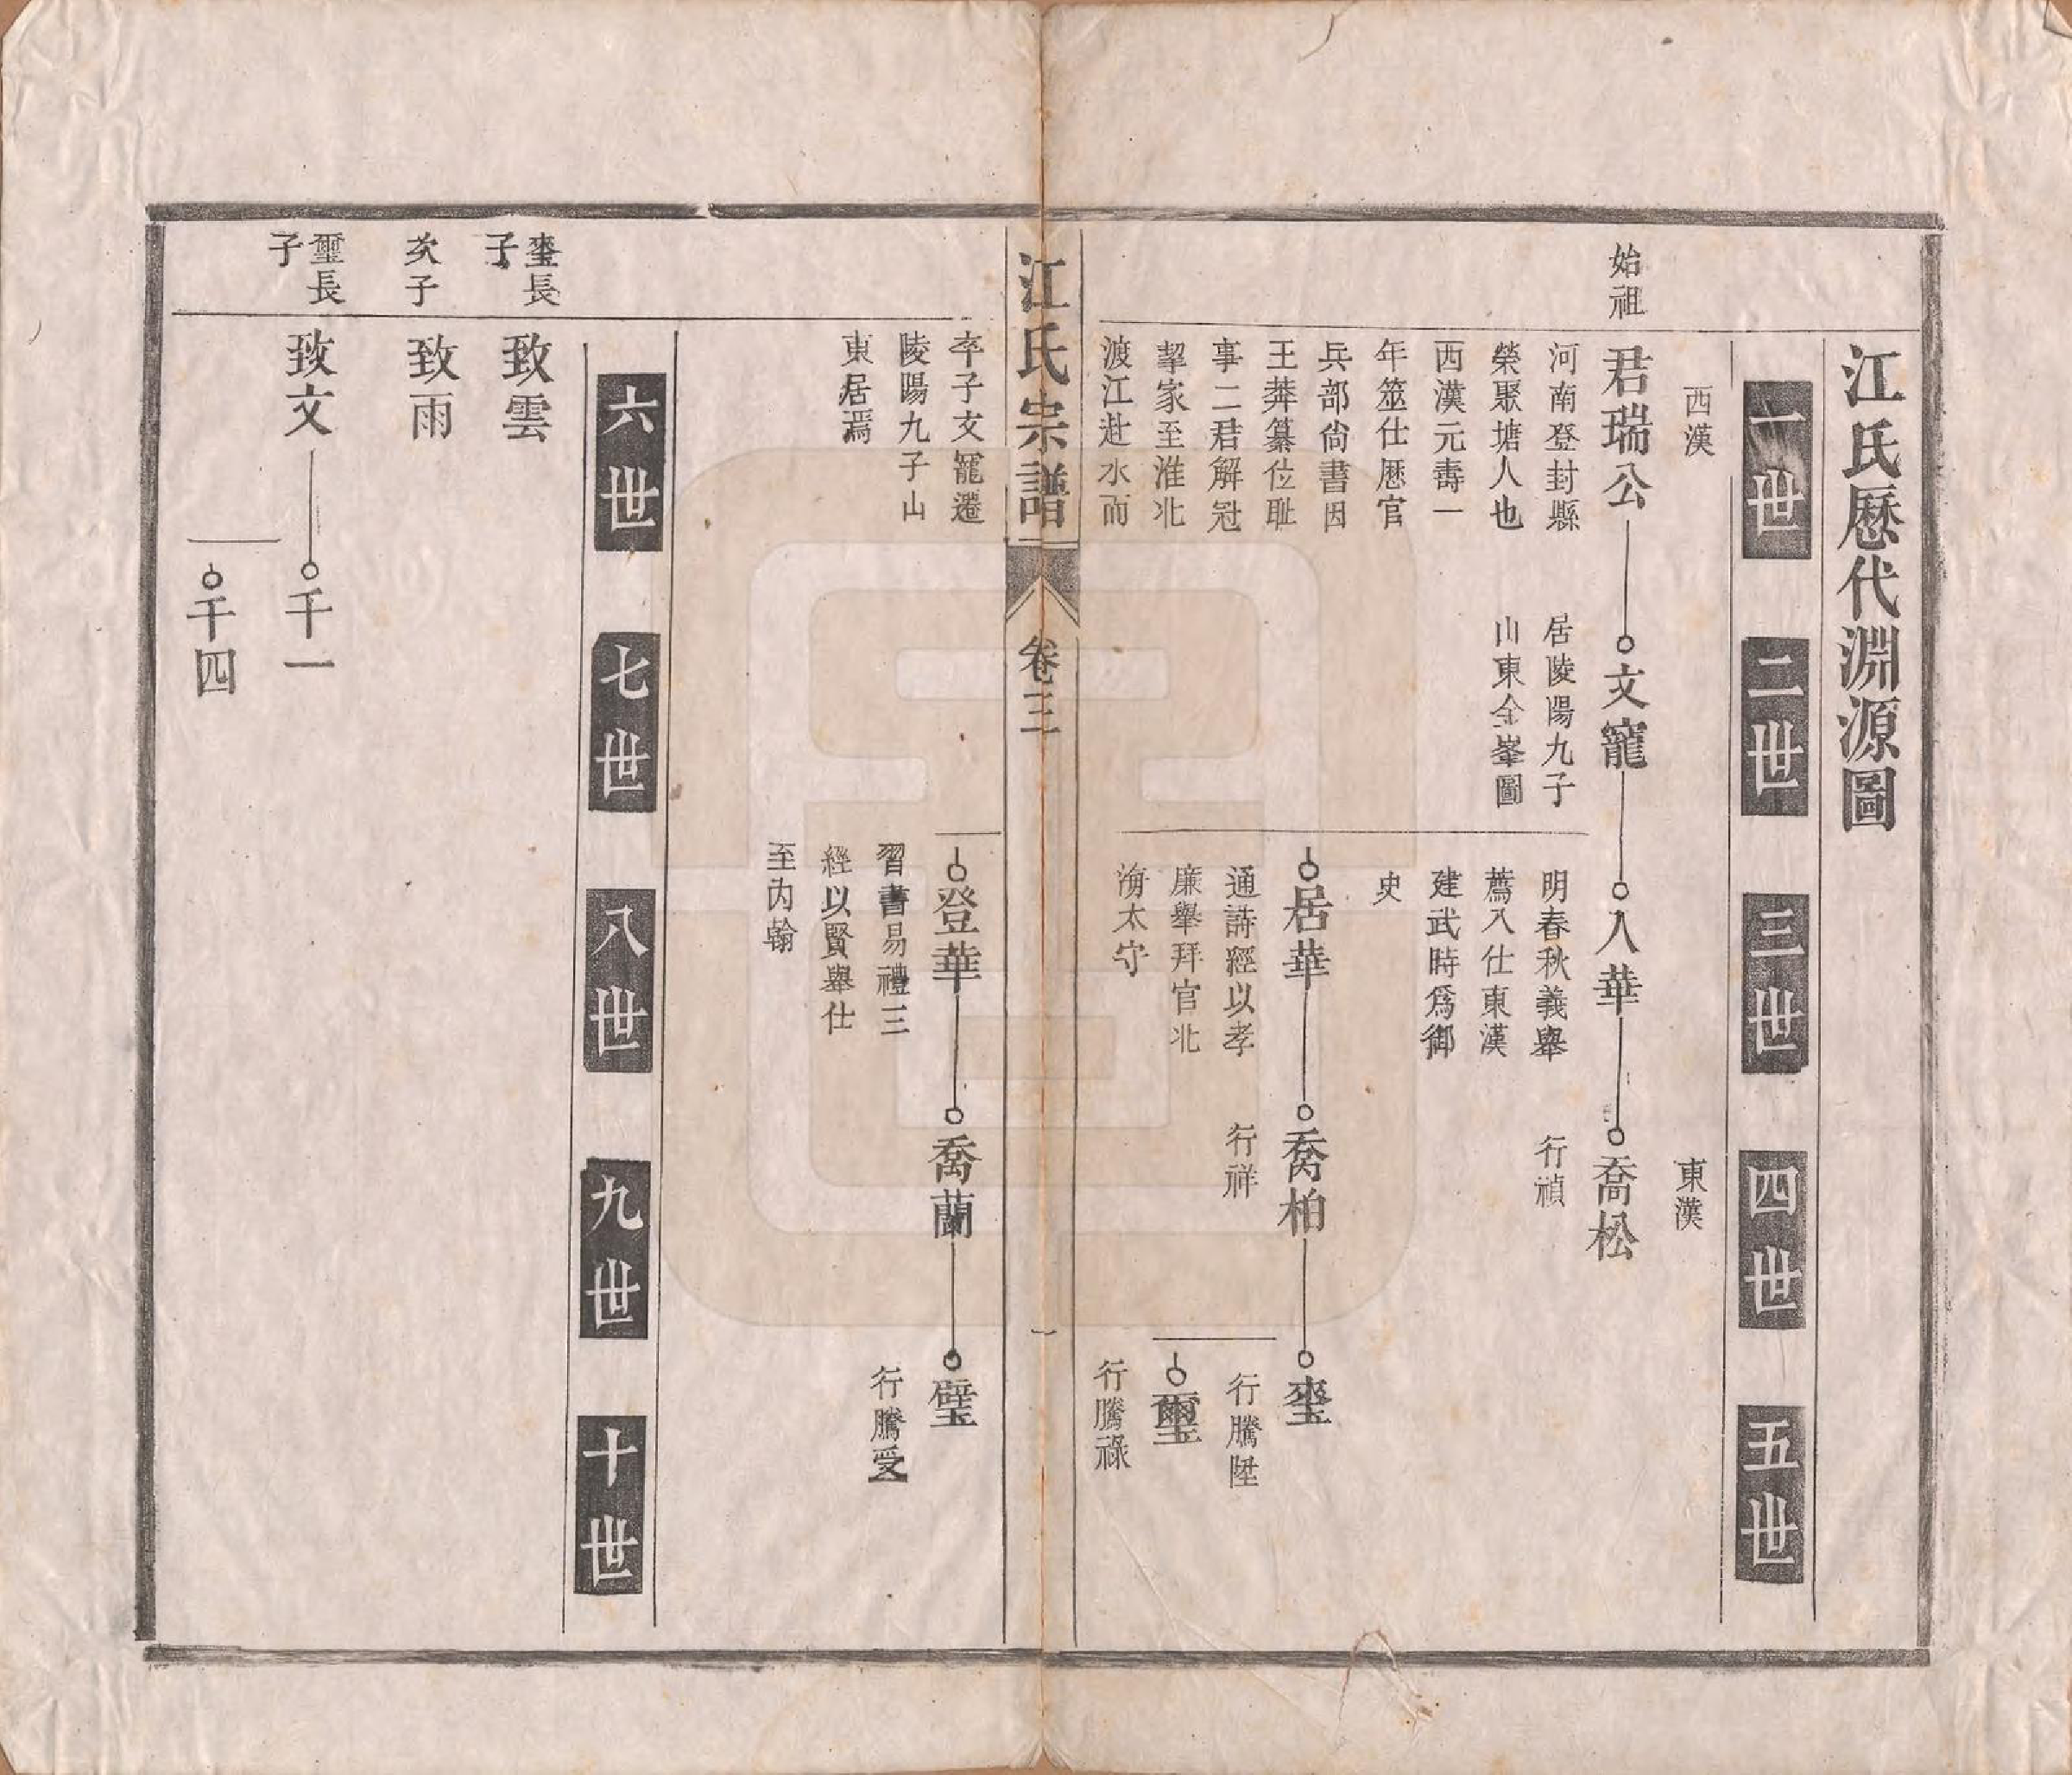 江氏厯代淵源圖
一世
二世
三世
四世
五世
西漢
東漢
始祖
君瑞公
文寵
入華
喬松
河南登封縣
榮聚塘人也
西漢元壽一
年筮仕厯官
兵部尙書因
王莽纂位耻
事二君解冠
挈家至淮北
渡江赴水而
居陵陽九子
山東金峯圖
明春秋義舉
薦入仕東漢
建武時爲御
史
行禎
居華
喬柏
通詩經以孝
廉舉拜官北
海太守
行祥
行騰陞
璽
行騰祿
江氏宗譜
卷三
一
卒子文寵遷
陵陽九子山
東居焉
登華
喬蘭
璧
習書易禮三
經以賢舉仕
至内翰
行騰受
六世
七世
八世
九世
十世
長
子
致雲
次子
致雨
璽長
子
致文
千一
千四